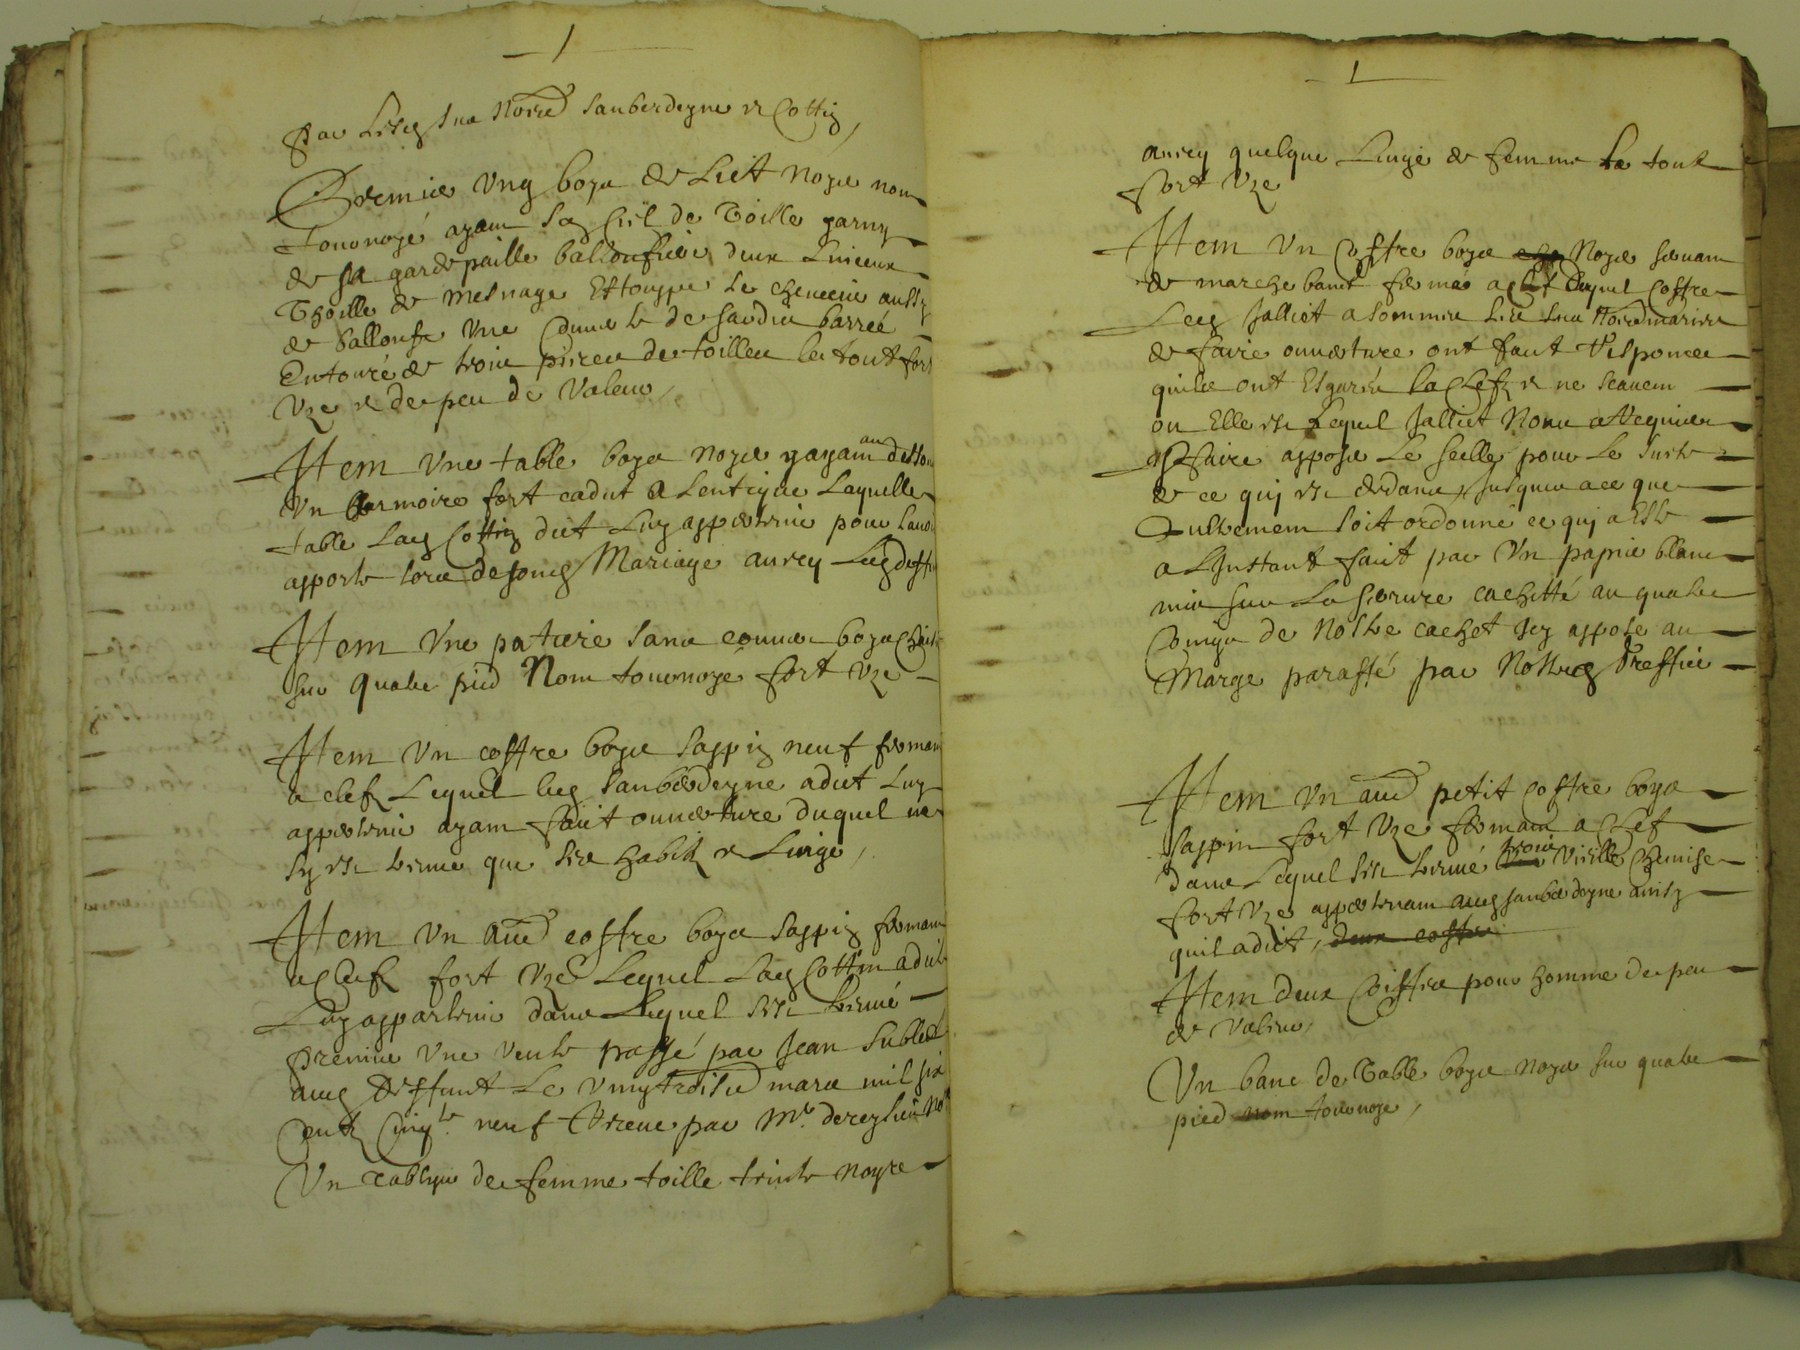 par lesd sus nommés Sauberdeyne et Cottin,
Premier ung boys de lict noyer non
tournoyé ayant son ciel de toille garny
de sa gardepaille balloufiere deux linceux
thoille de mesnage Estouppe le chevecie aussy
de ballouffe une couverte de sardis barrée
Entouré de trois pieces de toilles le tout fort
Uzé et de peu de valeur,
Item Une table boys noyer y ayant au dessou
Un Armoire fort cadut a lentique Laquelle
table lad Cottin dict Luy appartenir pour lavoir
apporté lors de sond Mariage avecq Led deffu
Item Une patiere sans couvercle boys
sur quatre pied Nom tournoyé fort Uzé
Item Un coffre boys sappin neuf fermant
a clef Lequel led Sauberdeyne a dict Luy
appartenir ayant faict ouverture duquel ne
sy est treuvé que ses habitz et Linge,
Item Un autre coffre boys sappin fermant
a Clef fort Uzé Lequel Lad Cottin a dict
Luy appartenir dans Lequel sest treuvé
premier Une vente passé par Jean Sublet
aud deffunct Le vingtroisie mars mil six
centz cinqte neuf Receue par Mr.
Un tablier de femme toille teinte noyre
avecq quelque Linge de femme Le tout
fort Uzé
Item Un Coffre boys noyer servant
de marchebanc fermé a clef Duquel Coffre
Led Jalliet a sommés les sus nommés mariés
de faire ouverture ont faict Responce
quilz ont Esgarés la Clefz et ne scavent
ou Elle est Lequel Jalliet Nous a Requier
faire appose Le scellé pour Le suste
de ce quj est dedans jusques a ce que
aultrement soit ordonné ce quj a Esté
a LJnstant faict par Un papier blanc
mis sur La serrure cachetté au quatre
Coings de Nostre cachet Jcy appose au
Marge paraffé par Nostred Greffier
Item Un autre petit coffre boys
sappin fort Uzé fermant a Clef
dans Lequel sest treuvé trois Vieille Chemise
fort Uzé appartenant aud Sauberdeyne ainsy
quil a dict, deux coffre
Item deux Coiffes pour homme de peu
de valeur,
Un banc de table boys noyer sur quatre
pied nom tournoyé,